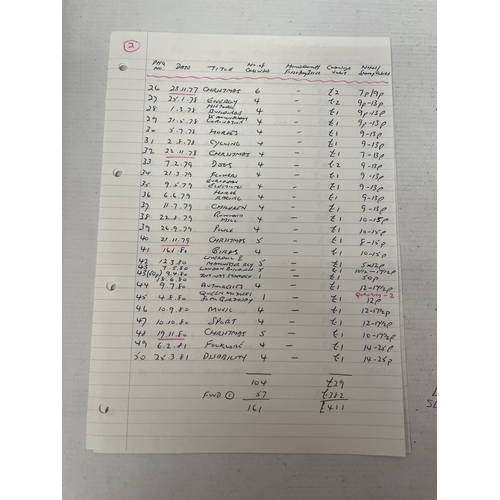 2
PHQ NO. DATE TITLE No. of Cards Catalogue Value
26 23.11.77 CHRISTMAS 6 - £2 7p/9p
27 25.1.78 ENERGY 4 - £2 9p-13p
28 1.3.78 HISTORIC BUILDINGS 4 - £1 9p-13p
29 31.5.78 CORONATION 4 - £1 9p-13p
30 5.7.78 HORSES 4 - £1 9-13p
31 2.8.78 CYCLING 4 - £1 9-13p
32 22.11.78 CHRISTMAS 4 - £1 7-13p
33 7.2.79 DOGS 4 - £2 9-13p
34 21.3.79 FLOWERS 4 - £1 9-13p
35 9.5.79 EUROPEAN ELECTIONS 4 - £1 9-13p
36 6.6.79 HORSE RACING 4 - £1 9-13p
37 11.7.79 CHILDREN 4 - £1 9-13p
38 22.8.79 ROWLAND HILL 4 - £1 10-15p
39 26.9.79 POLICE 4 - £1 10-15p
40 21.11.79 CHRISTMAS 5 - £1 8-15p
41 16.1.80 BIRDS 4 - £1 10-15p
42 12.3.80 LIVERPOOL & MANCHESTER RLY 5 - £1
43 7.5.80 LONDON 5 - £1
9.4.80 1 - £1 50p
44 9.7.80 AUTHORESSES 4 - £1 12-17½p
45 4.8.80 QUEEN MOTHERS 80TH BIRTHDAY 1 - £1 12p
46 10.9.80 MUSIC 4 - £1 12-17½p
47 10.10.80 SPORT 4 - £1 12-17½p
48 19.11.80 CHRISTMAS 5 - £1 10-17½p
49 6.2.81 FOLKLORE 4 - £1 14-25p
50 25.3.81 DISABILITY 4 - £1 14-25p
104 £29
FWD 1 57 £382
161 £411